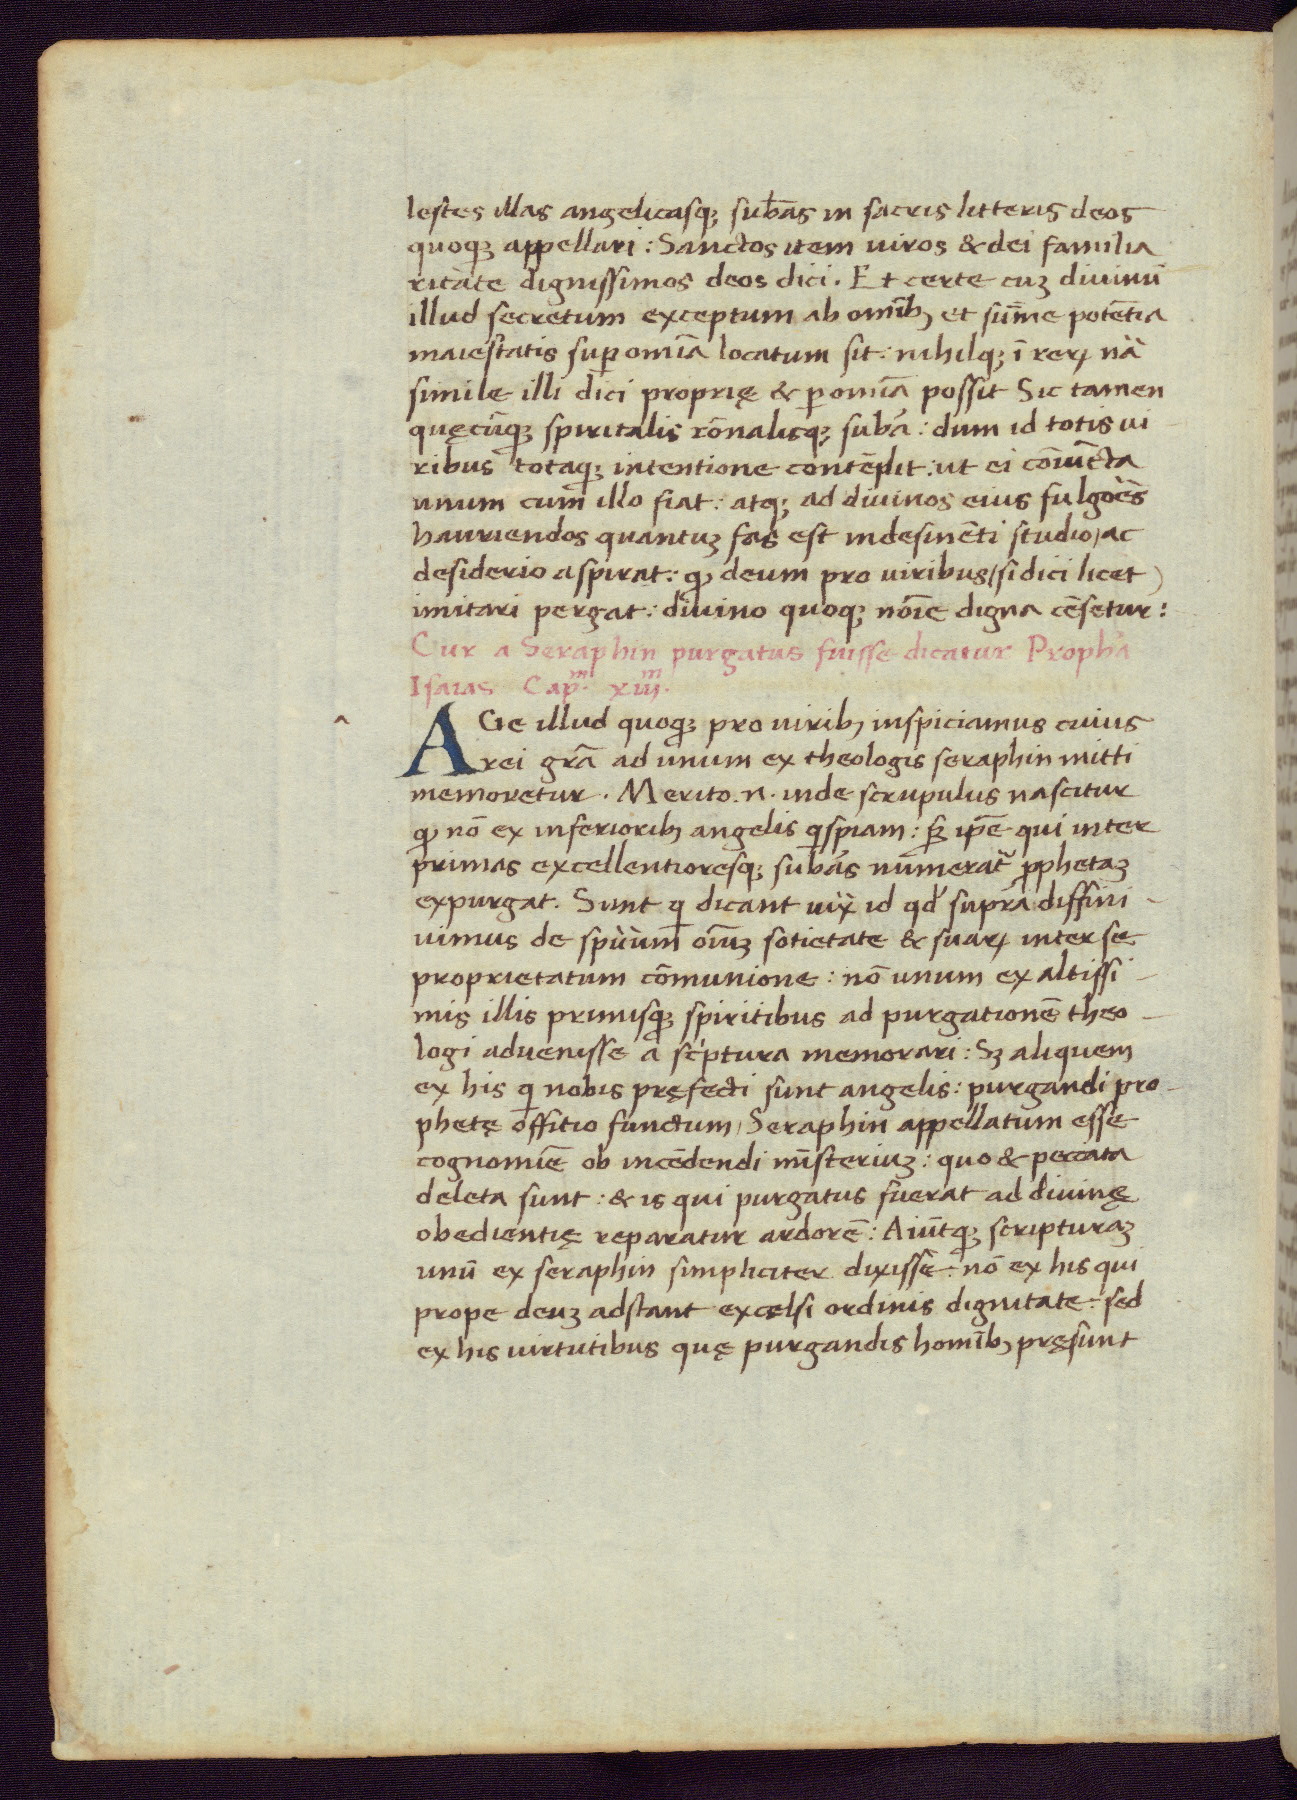 lestes illas angelicasq; subāas in sacris litteris deos
quoq; appellari : Sanctos item uiros & dei familia
ritate dignissimos deos dici . Et certe cuȝ diuinū
illud secretum exceptum ab omībȝ et sūme potētia
maiestatis suꝑ omīa locatum sit : nihilq; ī reꝝ nā
simile illi dici proprię & ꝑ omīa possit Sic tamen
quęcūq; spiritalis rōnalisq; subā : dum id totis ui -
ribus totaq; intentione contēdit : ut ei cōiūcta
unum cum illo fiat : atq; ad diuinos eius fulgoēs
hauriendos quantuȝ fas est indesinēti studio / ac
desiderio aspirat : ꝙ deum pro uiribus ( si dici licet )
imitari pergat : diuino quoq; nōīe digna cēsetur :
Cur a Seraphin purgatus fuisse dicatur Prophā
Isaias Capᵐ. xiiiᵐ.
AGe illud quoq; pro uiribȝ inspiciamus cuius
rei grā ad unum ex theologis seraphin mitti
memoretur . Merito .n. inde scrupulus nascitur
ꝙ nō ex inferioribȝ angelis qispiam : sȝ ip̄e qui inter
primas excellentioresq; subās numerat᷑ ꝓphetaȝ
expurgat . Sunt qi dicant uix id qd́ supra diffini -
uimus de sp̄uum oīuȝ sotietate & suaꝝ inter se
proprietatum cōmunione : nō unum ex altissi -
mis illis primisq; spiritibus ad purgationē theo -
logi aduenisse a sc̍ptura memorari : Sȝ aliquem
ex his qi nobis pręfecti sunt angelis : purgandi pro -
phetę offitio functum / Seraphin appellatum esse
cognomīe ob incēdendi mīsteriuȝ : quo & peccata
deleta sunt : & is qui purgatus fuerat ad diuinę
obedientię reparatur ardorē : Aiūtq; scripturaȝ
unū ex seraphin simpliciter dixisse : nō ex his qui
prope deuȝ adstant excelsi ordinis dignitate : sed
ex his uirtutibus quę purgandis homībȝ pręsunt